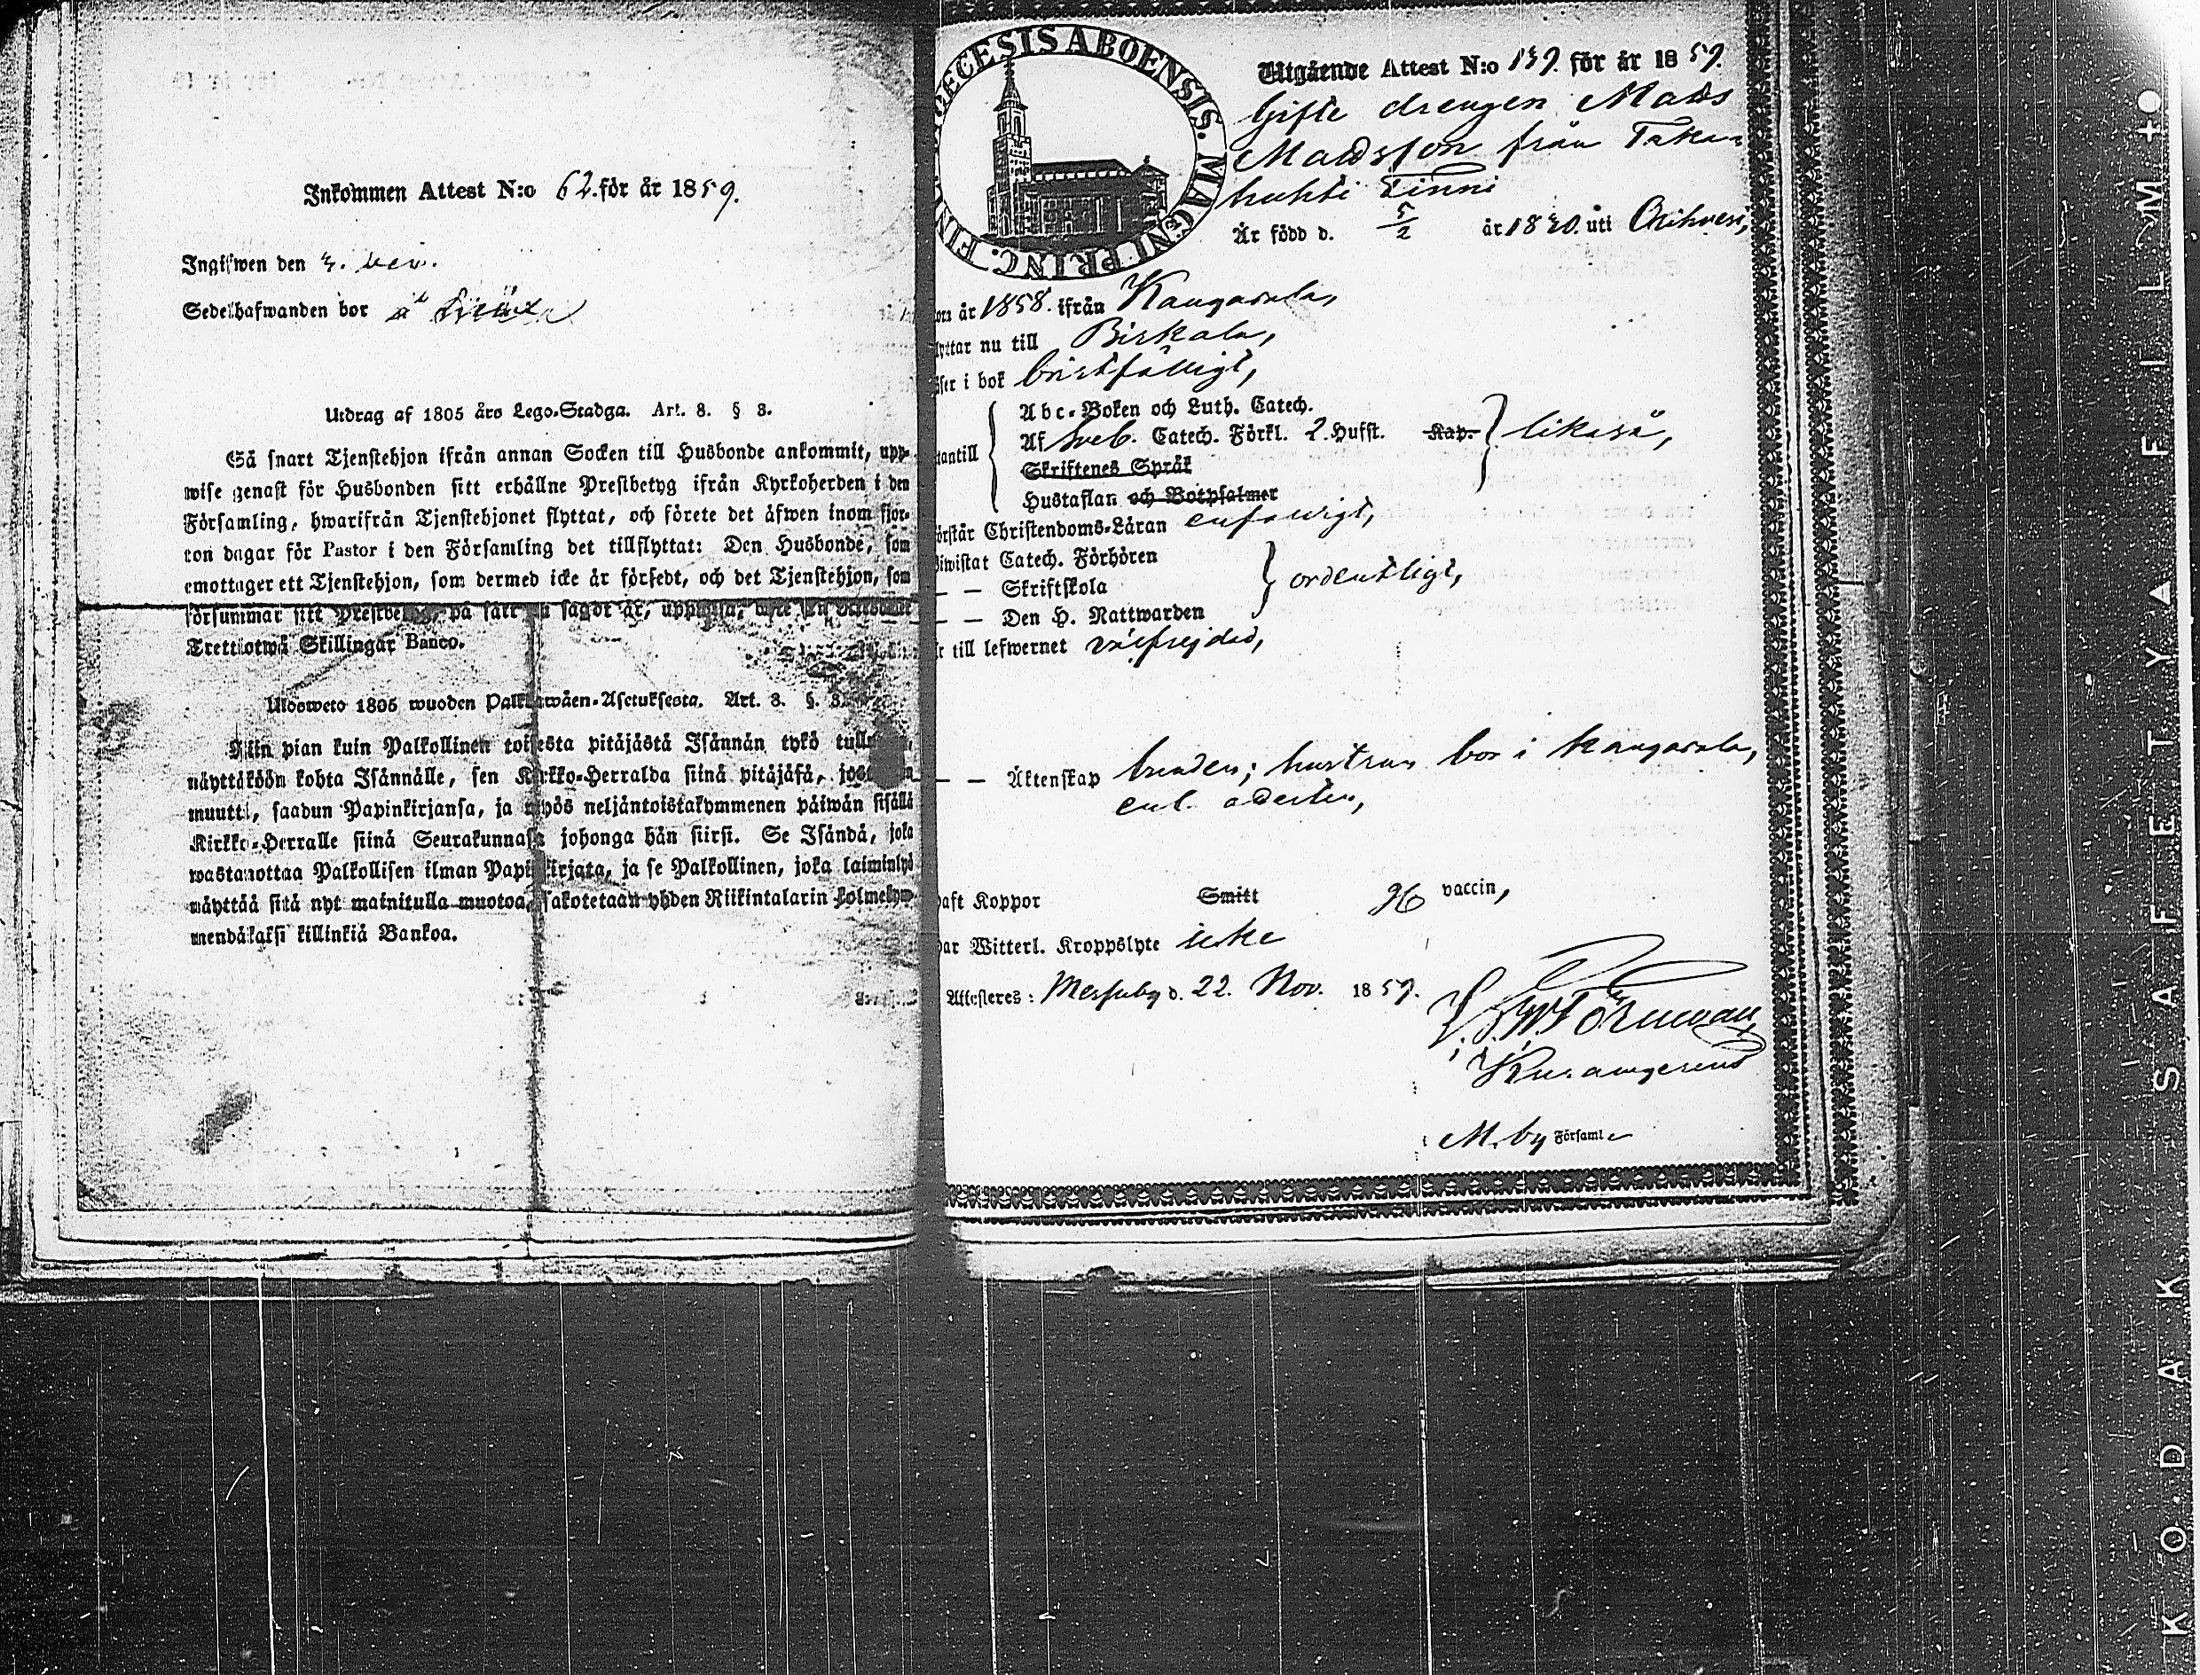 Inkommen Attest N:o 62. för år 1859.
Ingifwen den 3. 
Sedelhafwanden bor å
Utdrag af 1805 års Lego-Stadga. Art. 8. § 3.
Så snart Tjenstehjon ifrån annan Socken till Husbonde ankommit, upp-
wise genast för Husbonden sitt erhållne Prestbetyg ifrån Kyrkoherden i den
Församling, hwarifrån Tjenstehjonet flyttat, och förete det äfwen inom fjor-
ton dagar för Pastor i den Församling det tillflyttat: Den Husbonde, som
emottager ett Tjenstehjon, som dermed icke är försedt, och det Tjenstehjon, som
försummar sitt på sätt sagdt är,
Trettiotwå Skillingar Banco.
Ulosweto 1805 wuoden Palkkawäen-Asetuksesta. Art. 8. §. 3.
Niin pian kuin Palkollinen toisesta pitäjästä Isännän tykö
näyttäköön kohta Isännälle, sen Kirkko-Herralda siinä pitäjäsä,
muutti, saadun Papinkirjansa, ja myös neljäntoistakymmenen päiwän sisällä
Kirkko-Herralle siinä Seurakunnasa johonga hän siirsi. Se Isändä, joka
wastanottaa Palkollisen ilman Papinkirjata, ja se Palkollinen, joka laiminlyö
näyttää sitä nyt mainitulla muotoa, sakotetaan yhden Riikintalarin kolmekym-
mendäkaksi killinkiä Bankoa.
DIOECESIS ABOENSIS. MAGNI PRINC. FIN
Utgående Attest N:o 139. för år 1859.
Gifte drengen Mats
Mattsson från Taka-
huhti Tinni
Är född d. 5/2 år 1830. uti Orihvesi,
om år 1858. ifrån Kangasala,
lyttar nu till Birkala,
äser i bok bristfälligt,
Abc-Boken och Luth. Catech.
Af Sveb. Catech. Förkl. 2. Hufst. Kap. likaså,
tantill
Skriftenes Språk
Hustaflan och Botpsalmer
örstår Christendoms-Läran enfaldigt,
Biwistat Catech. Förhören
— — Skriftskola ordentligt,
— — Den H. Nattwarden
r till lefwernet välfrejdad,
— — Äktenskap bunden; hustrun bor i Kangasala,
enl. attesten,
aft Koppor Smitt vaccin,
ar Witterl. Kroppslyte icke
Attesteres: Messuby d. 22. Nov. 1859.
M.by Församl.
KODAK SAFETY FILM